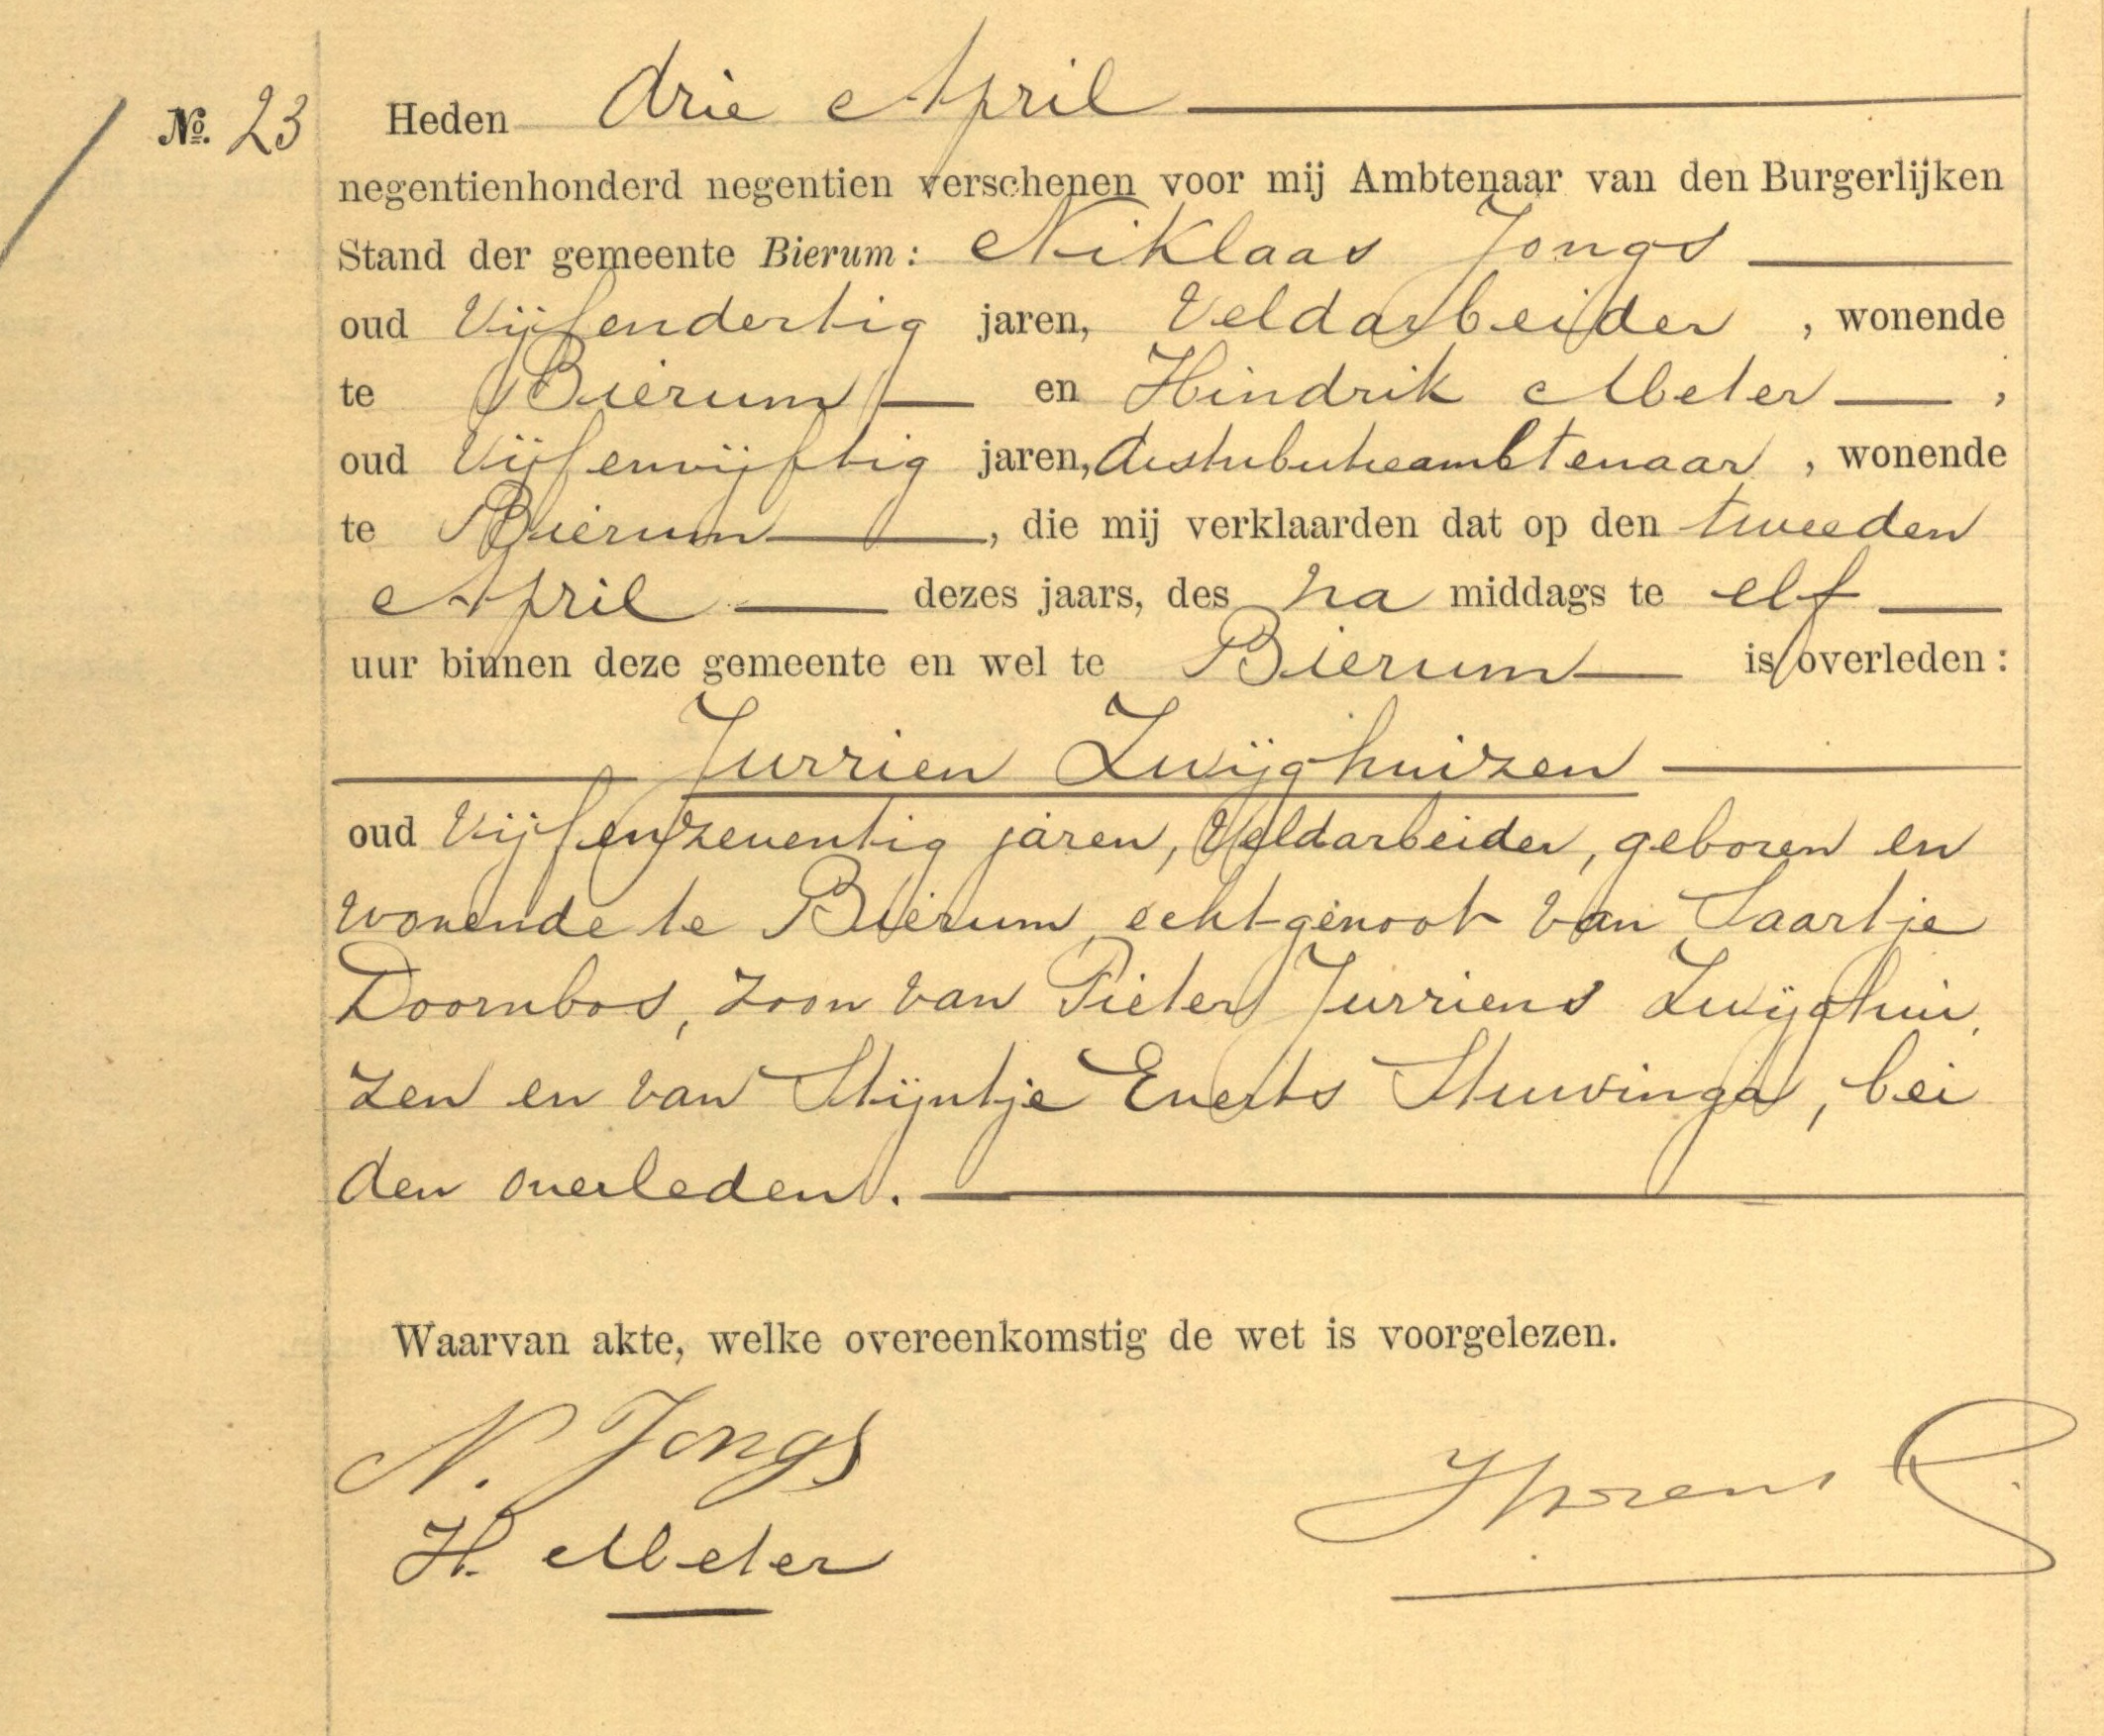 No. 23 Heden drie April
negentienhonderd negentien verschenen voor mij Ambtenaar van den Burgerlijken
Stand der gemeente Bierum: Niklaas Jongs
oud vijfendertig jaren, veldarbeider, wonende
te Bierum en Hindrik Meter,
oud vijfenvijftig jaren, distributieambtenaar, wonende
te Bierum, die mij verklaarden dat op den tweeden
April dezes jaars, des na middags te elf
uur binnen deze gemeente en wel te Bierum is overleden:
Jurrien Zwijghuizen
oud vijfenzeventig jaren, veldarbeider, geboren en
wonende te Bierum, echtgenoot van Saartje
Doornbos, zoon van Pieter Jurriens Zwijghui
zen en van Stijntje Everts Stuivinga, bei
den overleden.
Waarvan akte, welke overeenkomstig de wet is voorgelezen.
N. Jongs
H. Meter